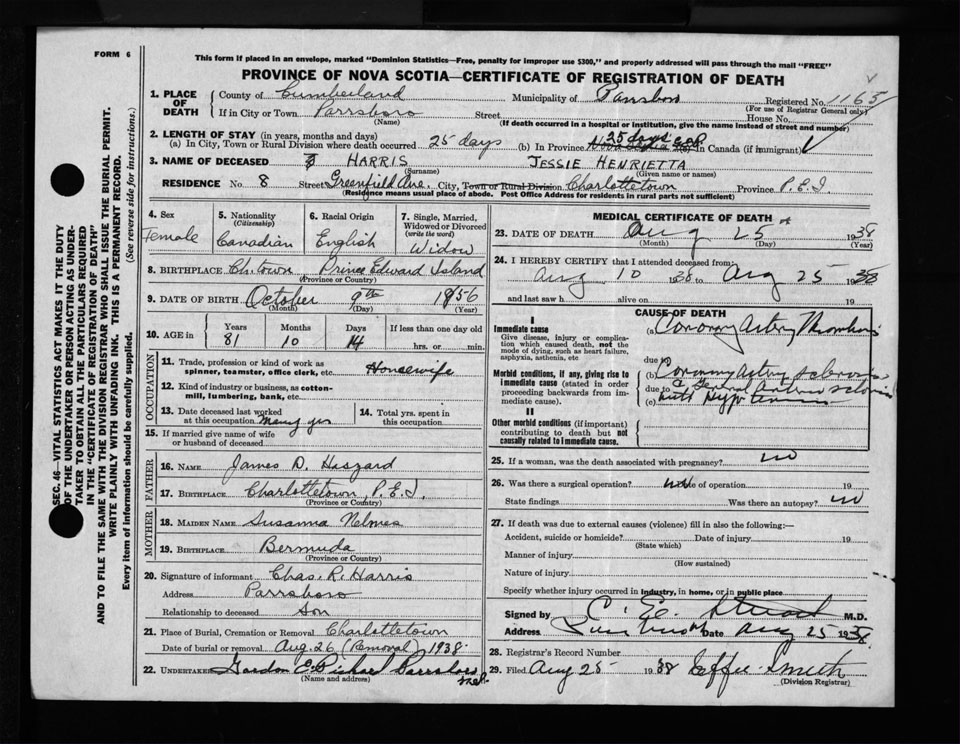 FORM 6
This form if placed in an envelope, marked "Dominion Statistics—Free, penalty for improper use $300," and properly addressed will pass through the mail "FREE"
PROVINCE OF NOVA SCOTIA—CERTIFICATE OF REGISTRATION OF DEATH
1. PLACE OF DEATH County of Cumberland Municipality of Parrsboro Registered No. 1165
(For use of Registrar General only)
If in City or Town Parrsboro Street House No.
(Name) (If death occurred in a hospital or institution, give the name instead of street and number)
2. LENGTH OF STAY (in years, months and days)
(a) In City, Town or Rural Division where death occurred 25 days (b) In Province 25 days (c) In Canada (if immigrant)
3. NAME OF DECEASED HARRIS JESSIE HENRIETTA
(Surname) (Given name or names)
RESIDENCE No. 8 Street Greenfield Ave. City, Town or Rural Division Charlottetown Province P.E.I
(Residence means usual place of abode. Post Office Address for residents in rural parts not sufficient)
4. Sex Female
5. Nationality (Citizenship) Canadian
6. Racial Origin English
7. Single, Married, Widowed or Divorced (write the word) Widow
8. BIRTHPLACE Ch.town Prince Edward Island
(Province or Country)
9. DATE OF BIRTH October 9th 1856
(Month) (Day) (Year)
10. AGE in Years 81 Months 10 Days 14 If less than one day old hrs. or min.
OCCUPATION
11. Trade, profession or kind of work as spinner, teamster, office clerk, etc. Housewife
12. Kind of industry or business, as cotton-mill, lumbering, bank, etc.
13. Date deceased last worked at this occupation many yrs
14. Total yrs. spent in this occupation
15. If married give name of wife or husband of deceased
FATHER
16. NAME James D. Haszard
17. BIRTHPLACE Charlottetown, P.E.I.
(Province or Country)
MOTHER
18. MAIDEN NAME Susanna Nelmes
19. BIRTHPLACE Bermuda
(Province or Country)
20. Signature of informant Chas. R. Harris
Address Parrsboro
Relationship to deceased Son
21. Place of Burial, Cremation or Removal Charlottetown
Date of burial or removal Aug. 26 (Removal) 1938.
22. UNDERTAKER Gordon Parrsboro
(Name and address)
MEDICAL CERTIFICATE OF DEATH
23. DATE OF DEATH Aug 25 1938
(Month) (Day) (Year)
24. I HEREBY CERTIFY that I attended deceased from
Aug 10 1938 to Aug 25 1938
and last saw h alive on 19
CAUSE OF DEATH
I
Immediate cause
Give disease, injury or complication which caused death, not the mode of dying, such as heart failure, asphyxia, asthenia, etc
(a) Coronary Artery Thrombosis
due to
Morbid conditions, if any, giving rise to immediate cause (stated in order proceeding backwards from immediate cause).
(b) Coronary Artery sclerosis
due to General Arterio sclerosis
(c) with Hypertension
II
Other morbid conditions (if important) contributing to death but not causally related to immediate cause.
25. If a woman, was the death associated with pregnancy? no
26. Was there a surgical operation? no Date of operation 19
State findings Was there an autopsy? no
27. If death was due to external causes (violence) fill in also the following:—
Accident, suicide or homicide? Date of injury 19
(State which)
Manner of injury
(How sustained)
Nature of injury
Specify whether injury occurred in industry, in home, or in public place
Signed by C. E. M.D.
Address Date Aug 25 1938
28. Registrar's Record Number
29. Filed Aug 25 1938 Effie Smith
(Division Registrar)
SEC. 46—VITAL STATISTICS ACT MAKES IT THE DUTY
OF THE UNDERTAKER OR PERSON ACTING AS UNDER-
TAKER TO OBTAIN ALL THE PARTICULARS REQUIRED
IN THE "CERTIFICATE OF REGISTRATION OF DEATH"
AND TO FILE THE SAME WITH THE DIVISION REGISTRAR WHO SHALL ISSUE THE BURIAL PERMIT.
WRITE PLAINLY WITH UNFADING INK. THIS IS A PERMANENT RECORD.
Every item of information should be carefully supplied. (See reverse side for instructions.)